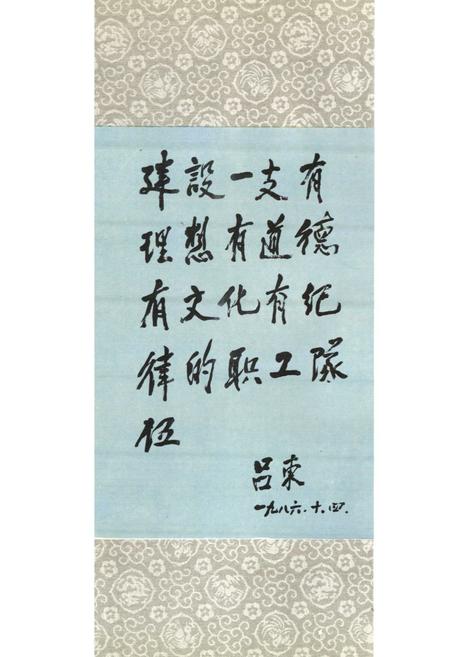 建設一支有
理想有道德
有文化有纪
律的职工隊
伍
吕東
一九八六.十.四.